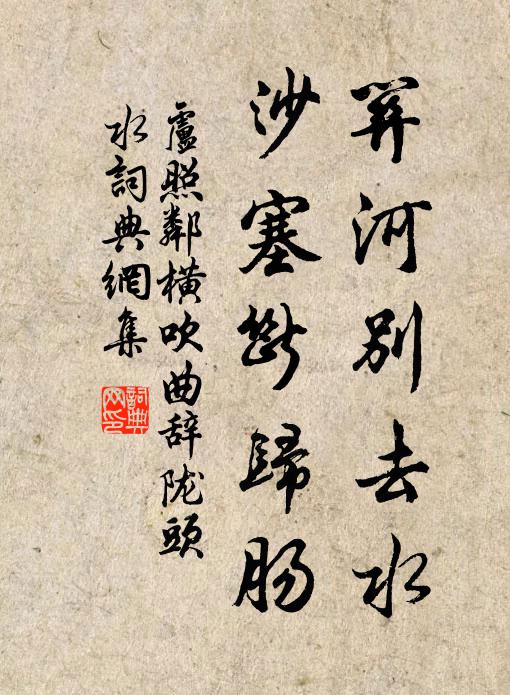 關河別去水
沙塞斷歸腸
盧照鄰横吹曲辞陇頭
水詞典網集
詞典
网印